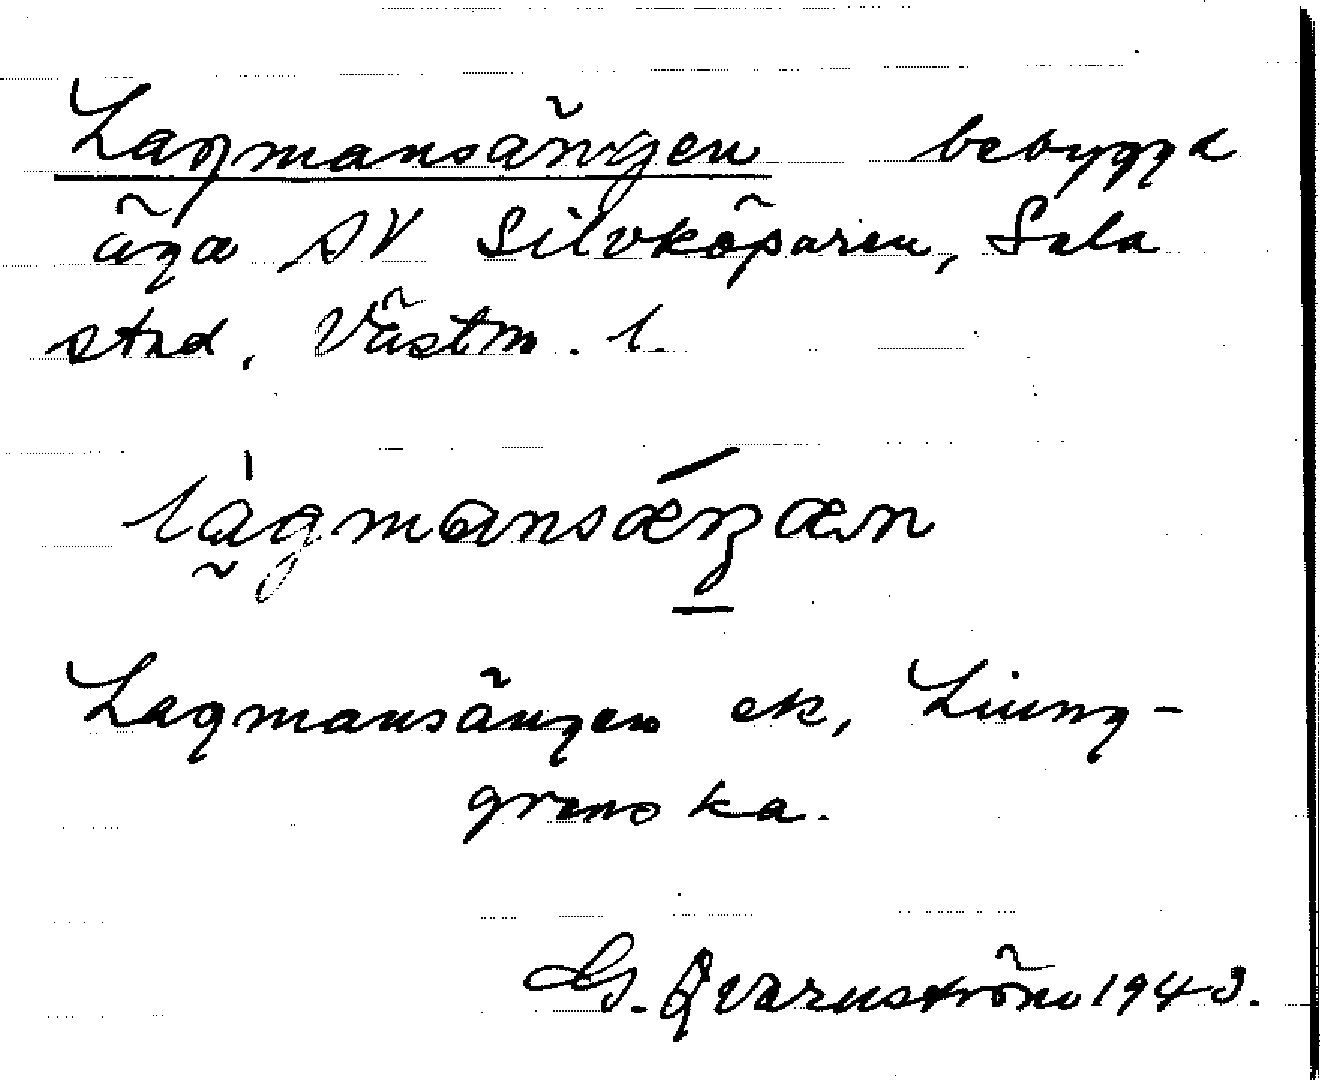 Lagmansängen bebyggd
äga SV Silvköparen, Sala
stad, Västm. l.
Lagmansängen ek, Liung-
grenska.
G. Qvarnström 1943.